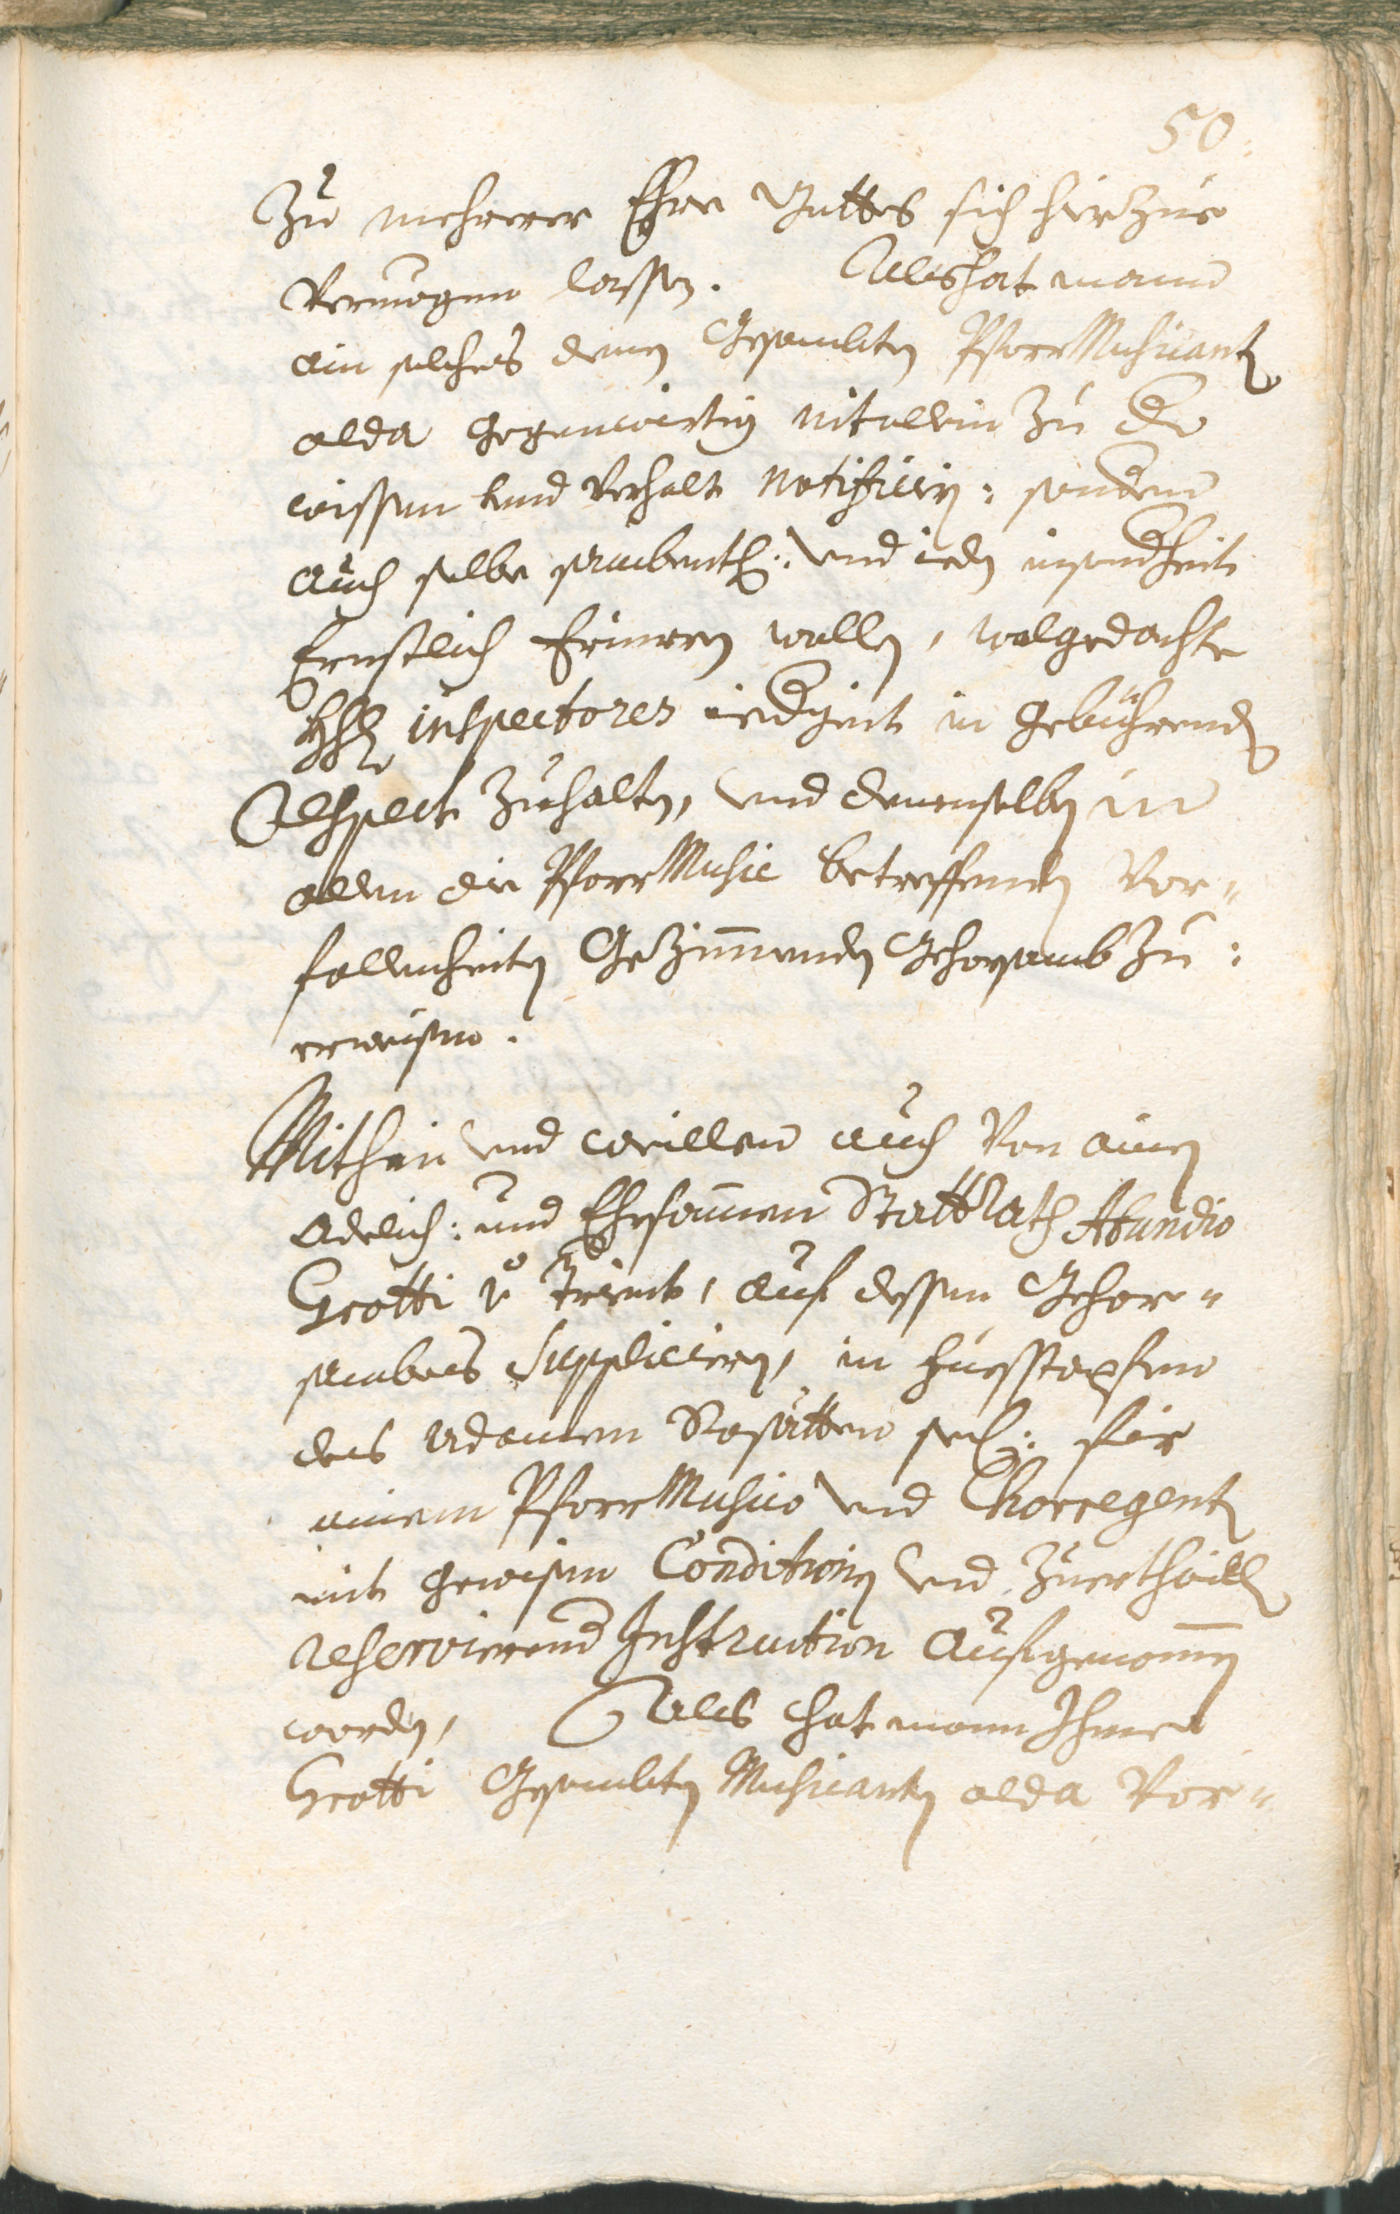 50.
Zu mehrerer Ehre Gottes sich hierzue
vermögen lassen. Als hat mann
ain solches denen Gesambten PfarrMusicant
alda gegenwertig nit allein zu der
wissen und verhalt notificiern: sondern
auch selbe sambentl: und ieden insonderheit
Ernstlich Erinnern wollen, wolgedachte
HHn inspectores iederzeit in gebührenden
Respect zuhalten, und denenselben in
allen die PfarrMusic betreffenden Vor-
fallenheiten Gezimmenden Gehorsamb zu:
erweisen.
Mithin und weillen auch von ainem
Adelich: und Ehrsamen StattRath Abundio
Grotti v Trient, auf dessen Gehor-
sambes Supplicieren, in fuesstapfen
des Adamen Rosatten sel: für
einem PfarrMusico und Chorregent
mit gewisen Conditionen und zuerthaillen
reservierend Instruction aufgenommen
worden, Als hat mann Ihme
Grotti Gesambten Musicanten alda Vor-